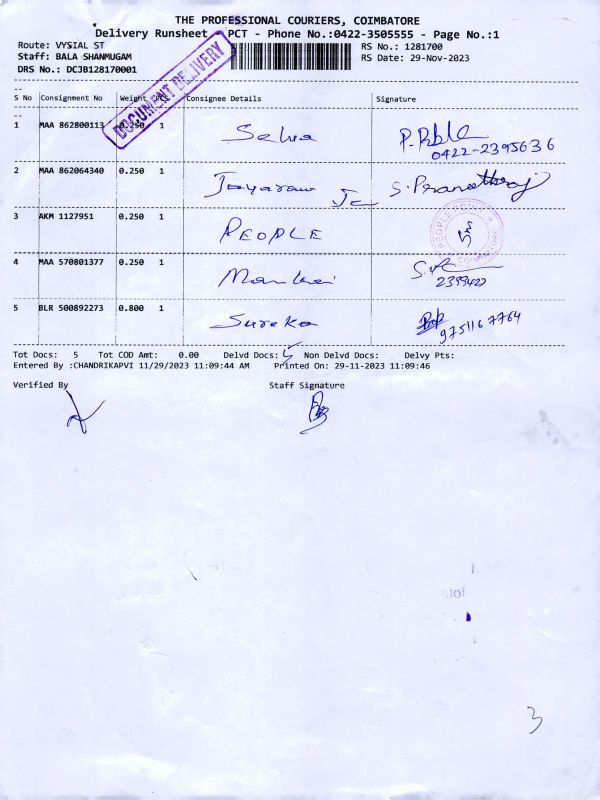 THE PROFESSIONAL COURIERS, COIMBATORE
Delivery Runsheet - PCT - Phone No.:0422-3505555 - Page No.:1
Route: VYSIAL ST
RS No.: 1281700
Staff: BALA SHANMUGAM
RS Date: 29-Nov-2023
DRS No.: DCJB128170001
DOCUMENT DELIVERY
S No Consignment No Weight PCS Consignee Details Signature
1 MAA 862800113 0.250 1 Selva
0422-2395636
2 MAA 862064340 0.250 1 Jayaram
3 AKM 1127951 0.250 1 PEOPLE
4 MAA 570801377 0.250 1
2399422
5 BLR 500892273 0.800 1 Sureka
9751167764
Tot Docs: 5 Tot COD Amt: 0.00 Delvd Docs: 5 Non Delvd Docs: Delvy Pts:
Entered By :CHANDRIKAPVI 11/29/2023 11:09:44 AM Printed On: 29-11-2023 11:09:46
Verified By Staff Signature
3